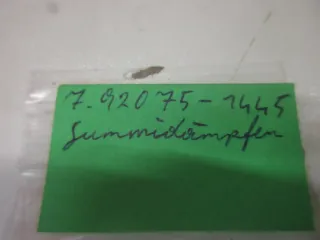 7.92075-1445
Gummidämpfer